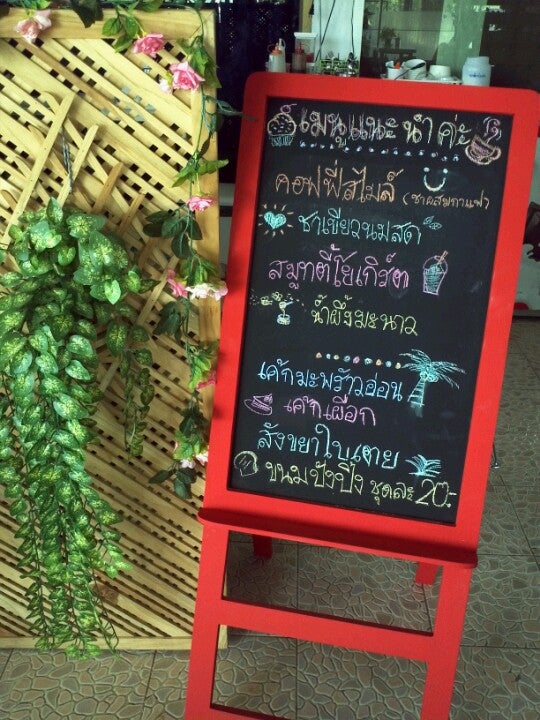 เมนูแนะนำค่ะ
คอฟฟี่สไมล์ (ชาผสมกาแฟ)
ชาเขียวนมสด
สมูทตี้โยเกิร์ต
น้ำผึ้งมะนาว
เค้กมะพร้าวอ่อน
เค้กเผือก
สังขยาใบเตย
ขนมปังปิ้ง ชุดละ 20.-